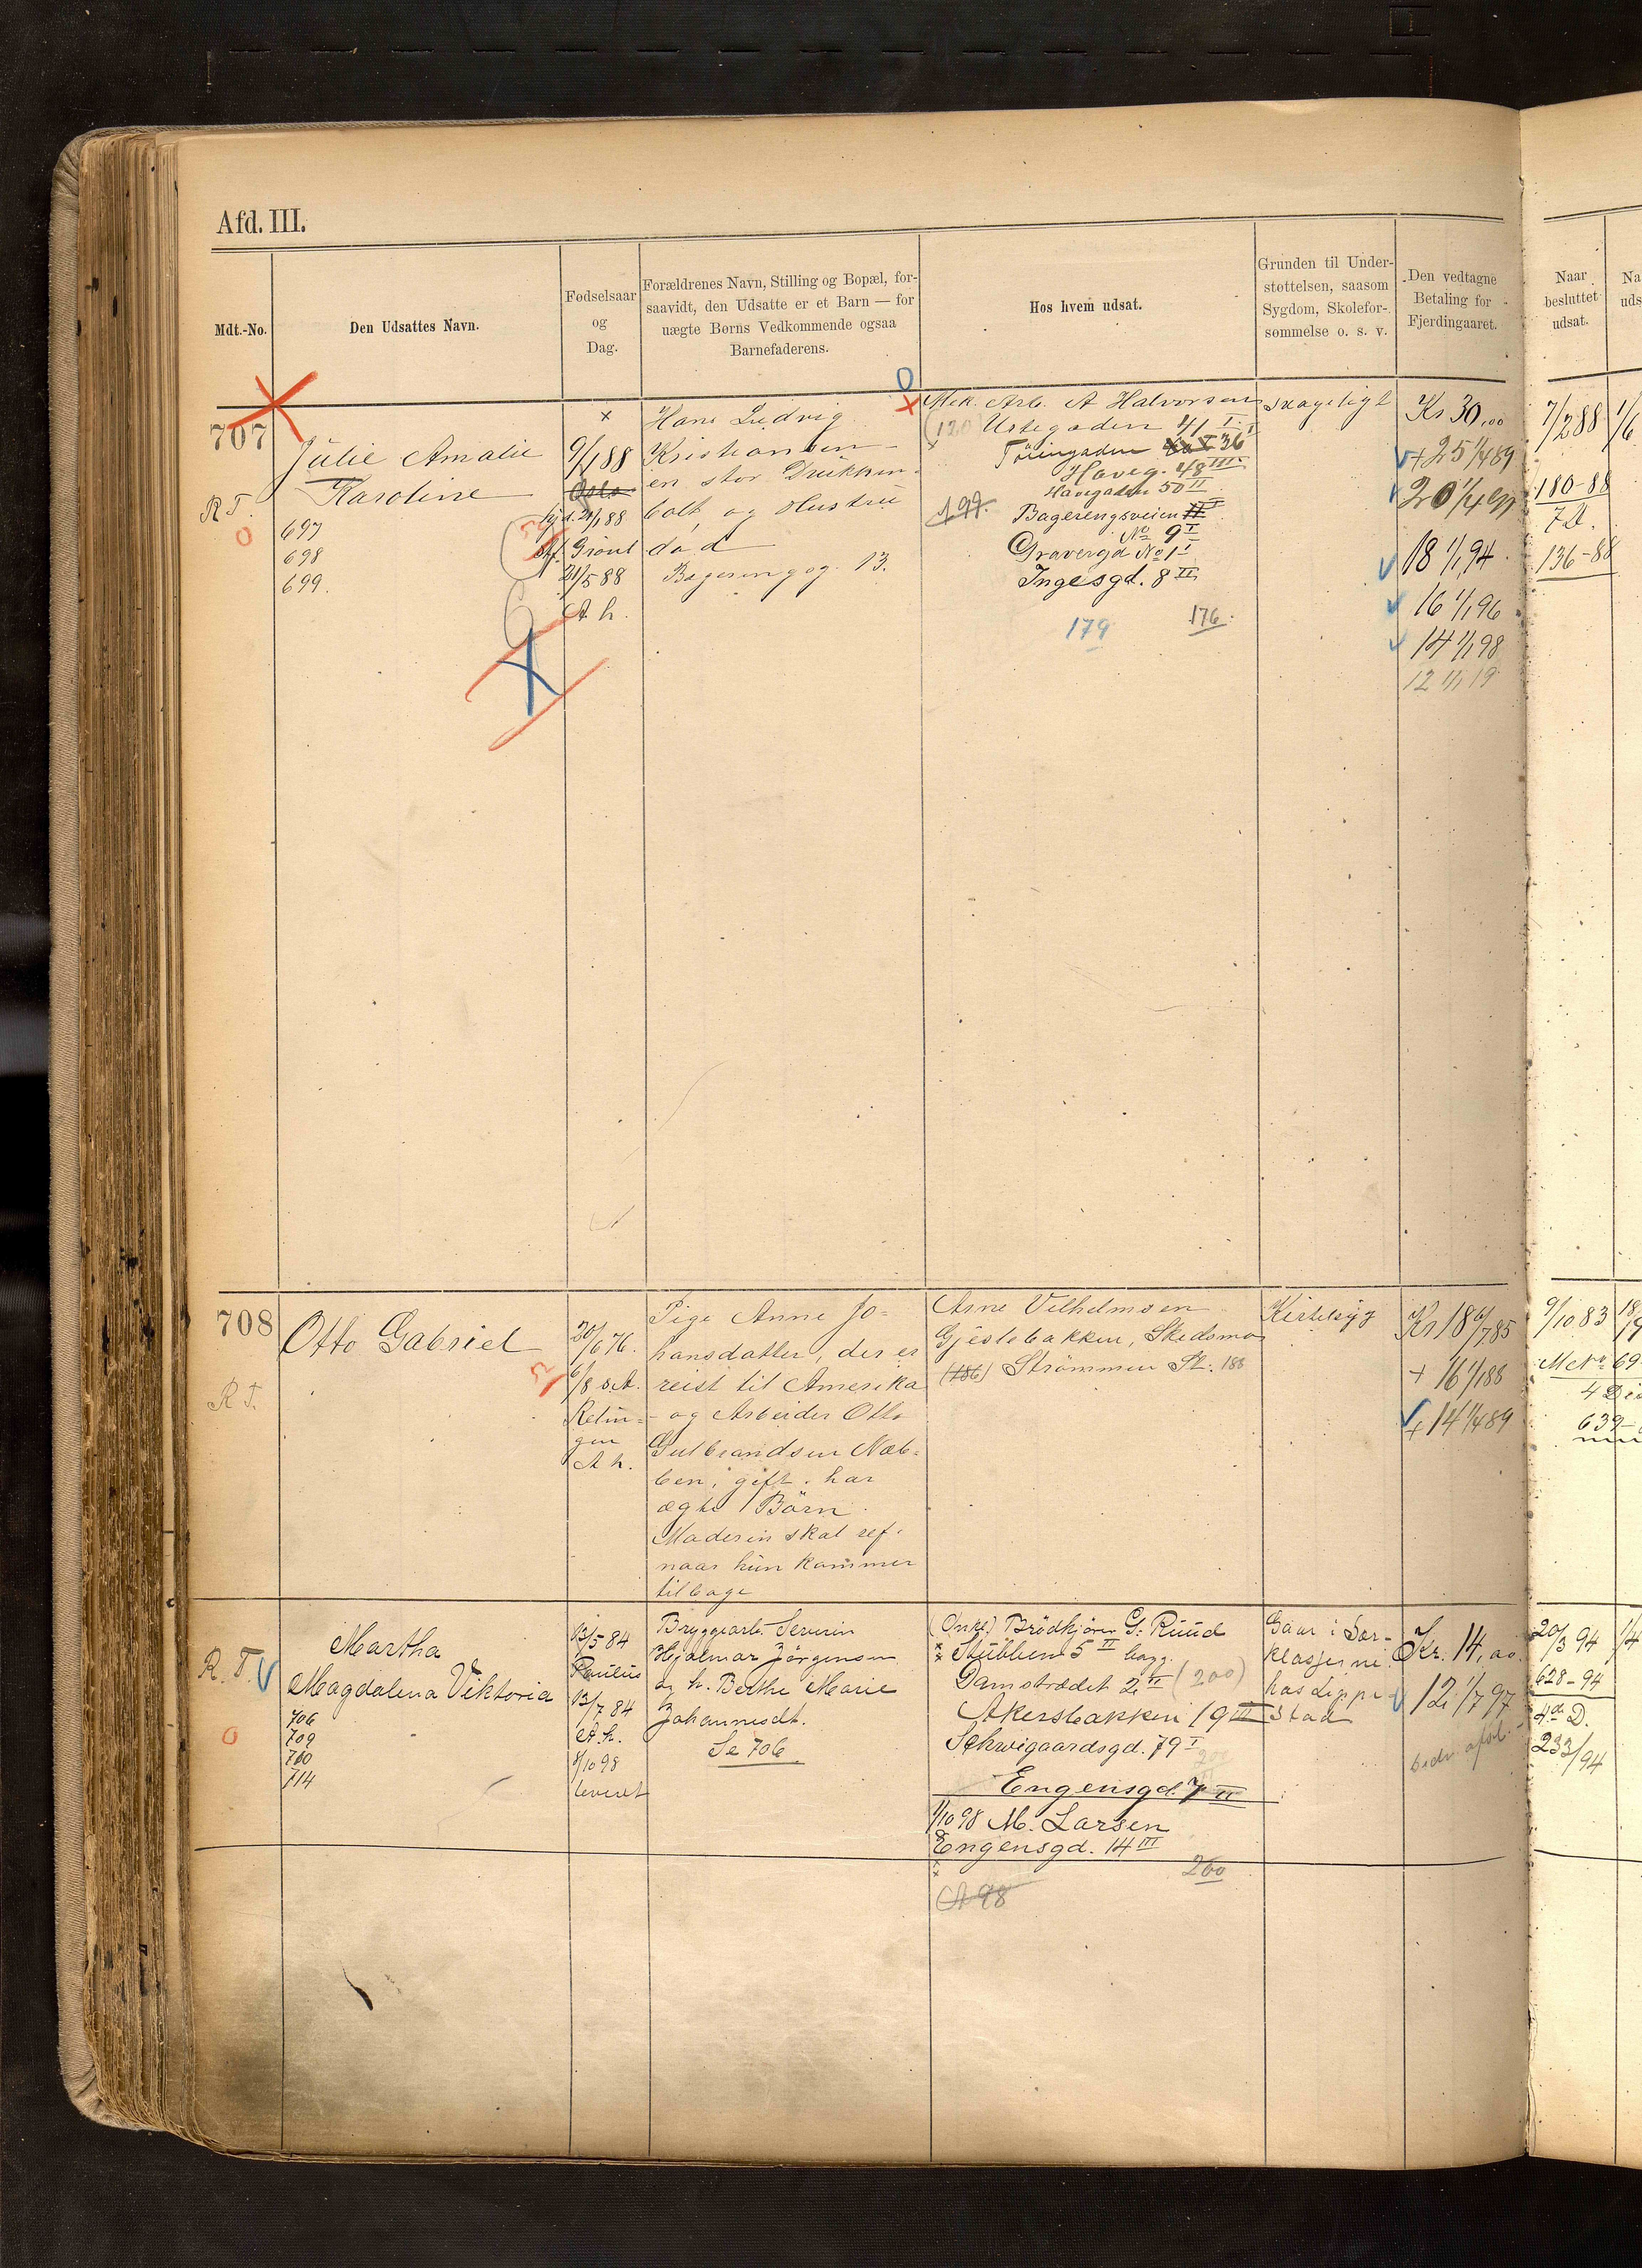 Afd. III.
Mdt.-No.
Den Udsattes Navn.
Fødselsaar
og
Dag.
Forældrenes Navn, Stilling og Bopæl, for-
saavidt, den Udsatte er et Barn — for
uægte Børns Vedkommende ogsaa
Barnefaderens.
Hos hvem udsat.
Grunden til Under-
støttelsen, saasom
Sygdom, Skolefor-
sømmelse o. s. v.
Den vedtagne
Betaling for
Fjerdingaaret.
Naar
besluttet
udsat.
Na
uds
707
R T.
Julie Amalie
Karoline
697
698
699.
9/1 88
Oslo
21/1 88
Grønl
21/5 88
A. h.
Hans Ludvig
Kristiansen
en stor Drikken-
bolt og Hustru
død
Bagerengvg. 13.
Mek. Arb. A Halvorsen
(120 Urtegaden 41 I
Töiengaden 36 I
Haveg. 48 III
Havegaden 50 II
199. Bagerengsveien
No 9 I
Gravergd No 1 I
Ingesgd. 8 II
179 176.
Kr 30,00
+ 25 1/4 89
20 1/4
18 1/1 94
16 1/1 96
14 1/1 98
12 1/1 19
7/2 88
180-88
7 D.
136-88
1/6
708
R T.
Otto Gabriel
20/6 76.
6/8 s.A.
A h.
Pige Anne Jo-
hansdatter, der er
reist til Amerika
- og Arbeider Otto
Gulbrandsen Næb-
ben, gift. har
ægte Börn.
Moderen skal ref.
naar hun kommer
tilbage
Arne Vilhelmsen
Gjestebakken, Skedsmo
(186) Strömmen St. 188
Kirtelsyg
Kr 18 6/7 85
+ 16 1/1 88
+ 14 1/4 89
9/10 83
4 Di
639-
R. T.
Martha
Magdalena Viktoria
706
709
710
714
13/5 84
Paulus
13/7 84
A. h.
1/10 98
leveret
Bryggearb. Severin
Hjalmar Jörgensen
og h. Berthe Marie
Johannesdt.
Se 706
(Onkel) Brödkjörer G. Ruud
Stubben 5 II bagg.
Damstrædet 2 II (200)
Akersbakken 19 III
Schweigaardsgd. 79 I
200
Engensgd. 7 II
1/10 98 M. Larsen
Engensgd. 14 III
200
A 98
Gaar i Sær-
klasserne
har Lippe-
stad
Kr. 14,00.
12 1/7 97
bidr. afsl.
20/3 94
628-94
4de D.
233/94
14